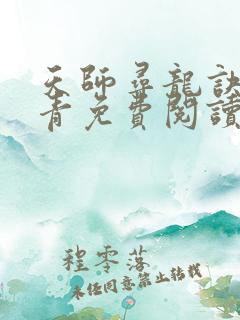 天師尋龍訣
青免費閱讀
程零落
未任同意禁止转载